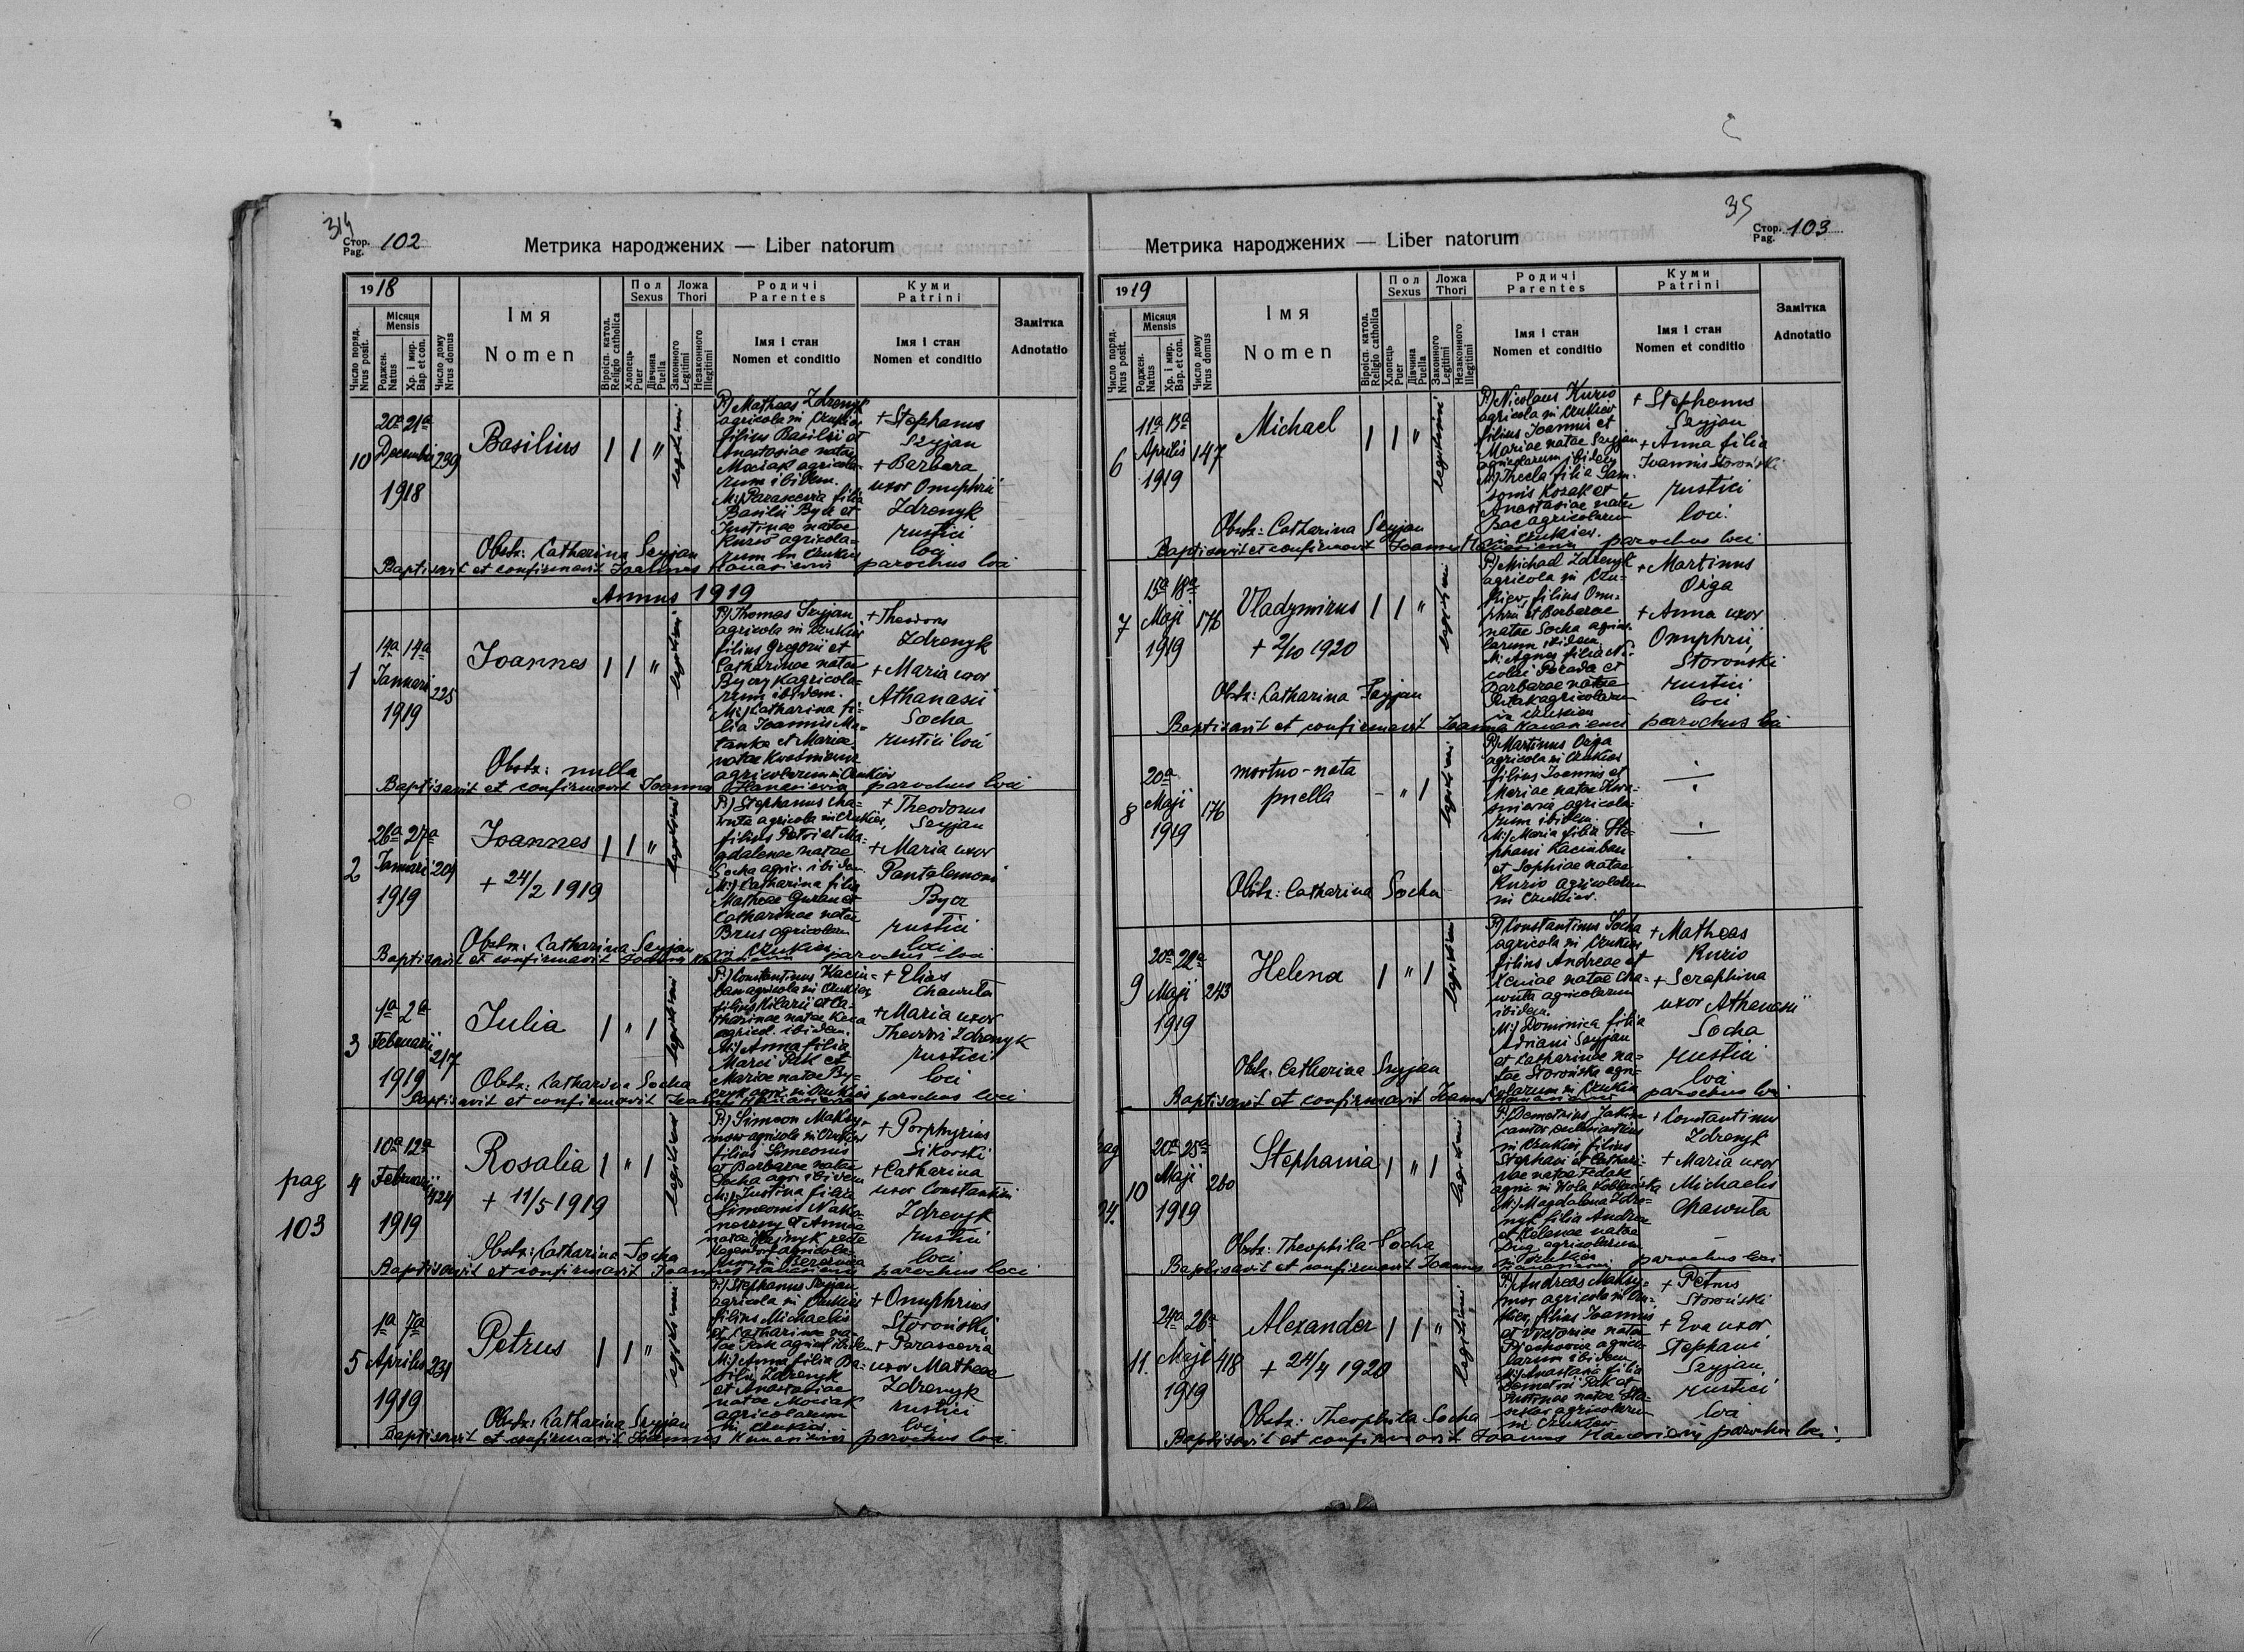 314
Стор. Pag. 102
Метрика народжених — Liber natorum
1918
Число поряд. Nrus posit.
Місяця Mensis
Роджен. Natus
Хр. і мир. Bap. et con.
Число дому Nrus domus
Імя
Nomen
Віроісп. катол. Religio catholica
Пол Sexus
Хлопець Puer
Дівчина Puella
Ложа Thori
Законного Legitimi
Незаконного Illegitimi
Родичі Parentes
Імя і стан
Nomen et conditio
Куми Patrini
Імя і стан
Nomen et conditio
Замітка
Adnotatio
10
20a 21a
Decembris
1918
239
Basilius
legitimi
P:) Matheas Zdrenyk
agricola in Czukiew
filius Basilii et
Anastasiae natae
Mociak agricola-
rum ibidem.
M:) Parascevia filia
Basilii Bycz et
Justinae natae
Kurio agricola-
rum in Czukiew
+ Stephanus
Szyjan
+ Barbara
uxor Onuphrii
Zdrenyk
rustici
loci
Obstr: Catharina Szyjan
Baptisavit et confirmavit Joannes parochus loci
Annus 1919
1
14a 14a
Januari
1919
225
Joannes
legitimi
P:) Thomas Szyjan
agricola in Czukiew
filius Gregorii et
Catharinae natae
agricola-
rum ibidem.
M:) Catharina fi-
lia Joannis
et Mariae
natae
agricolarum in Czukiew
+ Theodorus
Zdrenyk
+ Maria uxor
Athanasii
Socha
rustici loci
Obstr: nulla
Baptisavit et confirmavit Joannes parochus loci
2
26a 27a
Januari
1919
209
Joannes
+ 24/2 1919
legitimi
P:) Stephanus Cha-
wuta agricola in Czukiew,
filius Petri et Ma-
gdalenae natae
Socha agric. ibidem
M:) Catharina filia
Matheae et
Catharinae natae
Brus agricolarum
in Czukiew
+ Theodorus
Szyjan
+ Maria uxor
Pantalemoni
Bycz
rustici
loci
Obstr: Catharina Szyjan
Baptisavit et confirmavit Joannes parochus loci
3
1a 2a
Februarii
1919
217
Julia
legitimi
P:) Constantinus Kacin-
ban agricola in Czukiew
filius Hilarii et Ca-
tharinae natae
agricol. ibidem.
M:) Anna filia
Marci Pak et
Mariae natae By-
czyk agric in Czukiew
+ Elias
Chawuta
+ Maria uxor
Theodori Zdrenyk
rustici
loci
Obstr: Catharina Socha
Baptisavit et confirmavit Joannes parochus loci
pag
103
4
10a 12a
Februarii
1919
424
Rosalia
+ 11/5 1919
legitimi
P:) Simeon Maksy-
mow agricola in Czukiew
filius Simeonis
et Barbarae natae
Socha agr ibidem
M:) Justina filia
Simeonis
et Annae
natae
+ Porphyrius
Sikorski
+ Catharina
uxor Constantini
Zdrenyk
rustici
loci
Obstr: Catharina Socha
Baptisavit et confirmavit Joannes parochus loci
5
1a 7a
Aprilis
1919
231
Petrus
legitimi
P:) Stephanus Szyjan
agricola in Czukiew
filius Michaelis
et Catharinae na-
tae Pak agricol ibidem
M:) Anna filia Ba-
silii Zdrenyk
et Anastasiae
natae Mociak
agricolarum
in Czukiew.
+ Onuphrius
Storoński
+ Parascevia
uxor Matheae
Zdrenyk
rustici
loci
Obstr: Catharina Szyjan
Baptisavit et confirmavit Joannes parochus loci
315
Стор. Pag. 103
Метрика народжених — Liber natorum
1919
Число поряд. Nrus posit.
Місяця Mensis
Роджен. Natus
Хр. і мир. Bap. et con.
Число дому Nrus domus
Імя
Nomen
Віроісп. катол. Religio catholica
Пол Sexus
Хлопець Puer
Дівчина Puella
Ложа Thori
Законного Legitimi
Незаконного Illegitimi
Родичі Parentes
Імя і стан
Nomen et conditio
Куми Patrini
Імя і стан
Nomen et conditio
Замітка
Adnotatio
6
11a 13a
Aprilis
1919
147
Michael
legitimi
P:) Nicolaus Kurio
agricola in Czukiew
filius Joannis et
Mariae natae Szyjan
agricolarum ibidem
M:) Thecla filia Sam-
sonis Kozak et
Anastasiae natae
Bac agricolarum
in Czukiew.
+ Stephanus
Szyjan
+ Anna filia
Joannis Storoński
rustici
loci.
Obstr: Catharina Szyjan
Baptisavit et confirmavit Joannes parochus loci
7
15a 18a
Maji
1919
176
Vladymirus
+ 2/10 1920
legitimi
P:) Michael Zdrenyk
agricola in Czu-
kiew, filius Onu-
phrii et Barbarae
natae Socha agrico-
larum ibidem
M: Agnes filia Ni-
colai Porada et
Barbarae natae
agricolarum
in Czukiew
+ Martinus
Oziga
+ Anna uxor
Onuphrii,
Storonski
rustici
loci
Obstr: Catharina Szyjan
Baptisavit et confirmavit Joannes parochus loci
8
20a
Maji
1919
176
mortuo-nata
puella
legitimi
P:) Martinus Oziga
agricola in Czukiew
filius Joannis et
Mariae natae
agricola-
rum ibidem.
M:) Maria filia Ste-
phani Kacinban
et Sophiae natae
Kurio agricolarum
in Czukiew.
Obstr: Catharina Socha
9
20a 22a
Maji
1919
243
Helena
legitimi
P:) Constantinus Socha
agricola in Czukiew
filius Andreae et
Xeniae natae Cha-
wuta agricolarum
ibidem.
M:) Dominica filia
Adriani Szyjan
et Catharinae na-
tae Storońska agri-
colarum in Czukiew
+ Matheas
Kurio
+ Seraphina
uxor Athanasii
Socha
rustici
loci
Obstr: Catharina Szyjan
Baptisavit et confirmavit Joannes parochus loci
10
20a 25a
Maji
1919
260
Stephania
legitimi
P:) Demetrius
cantor
in Czukiew, filius
Stephani et Cathari-
nae natae Fedak
agric. in Wola
M:) Magdalena Zdre-
nyk filia Andreae
et Helenae natae
agricolarum
in Czukiew
+ Constantinus
Zdrenyk
+ Maria uxor
Michaelis
Chawuta
Obstr: Theophila Socha
Baptisavit et confirmavit Joannes parochus loci
11.
24a 26a
Maji
1919
418
Alexander
+ 24/4 1920
legitimi
P:) Andreas Maksy-
mow agricola in Czu-
kiew, filius Joannis
et Victoriae natae
agrico-
larum ibidem
M:) Anastasia filia
Demetrii Pak et
Justinae natae
agricolarum
in Czukiew
+ Petrus
Storoński
+ Eva uxor
Stephani
Szyjan
rustici
loci
Obstr: Theophila Socha
Baptisavit et confirmavit Joannes parochus loci